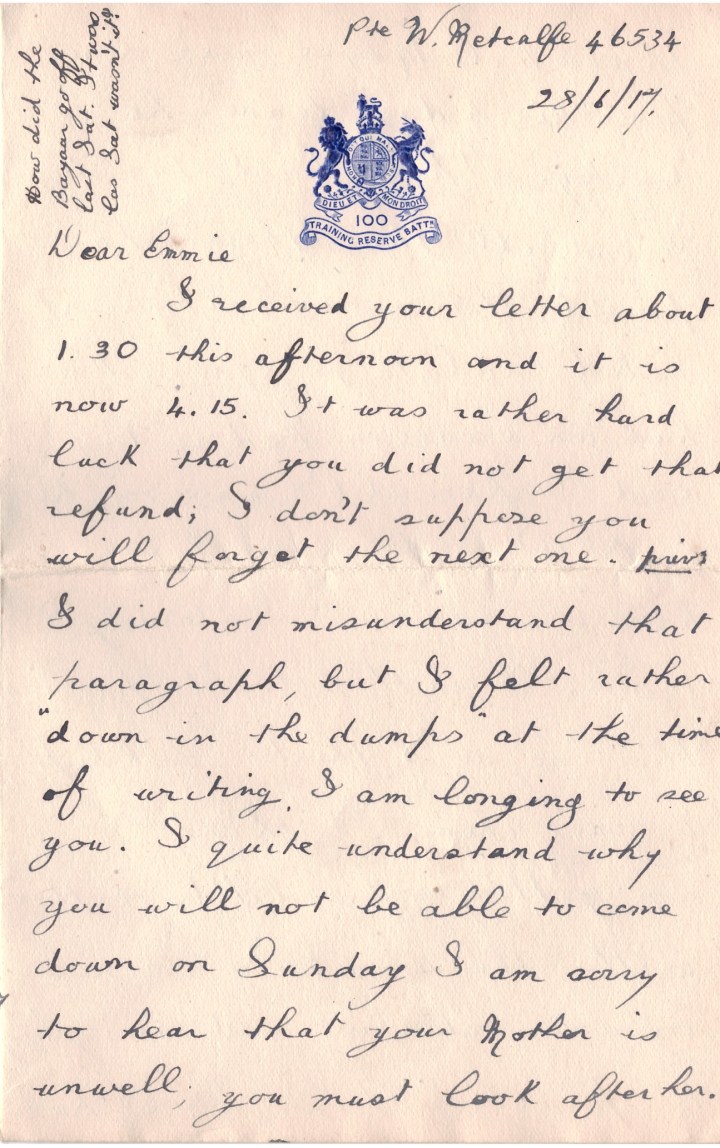 Pte W. Metcalfe 46534
28/6/17.
How did the
Bazaar go off
last Sat. It was
las Sat wasn't it?
DIEU ET MON DROIT
100
TRAINING RESERVE BATTN
Dear Emmie
I received your letter about
1.30 this afternoon and it is
now 4.15. It was rather hard
luck that you did not get that
refund; I don't suppose you
will forget the next one.
I did not misunderstand that
paragraph, but I felt rather
"down in the dumps" at the time
of writing. I am longing to see
you. I quite understand why
you will not be able to come
down on Sunday I am sorry
to hear that your Mother is
unwell; you must look after her.